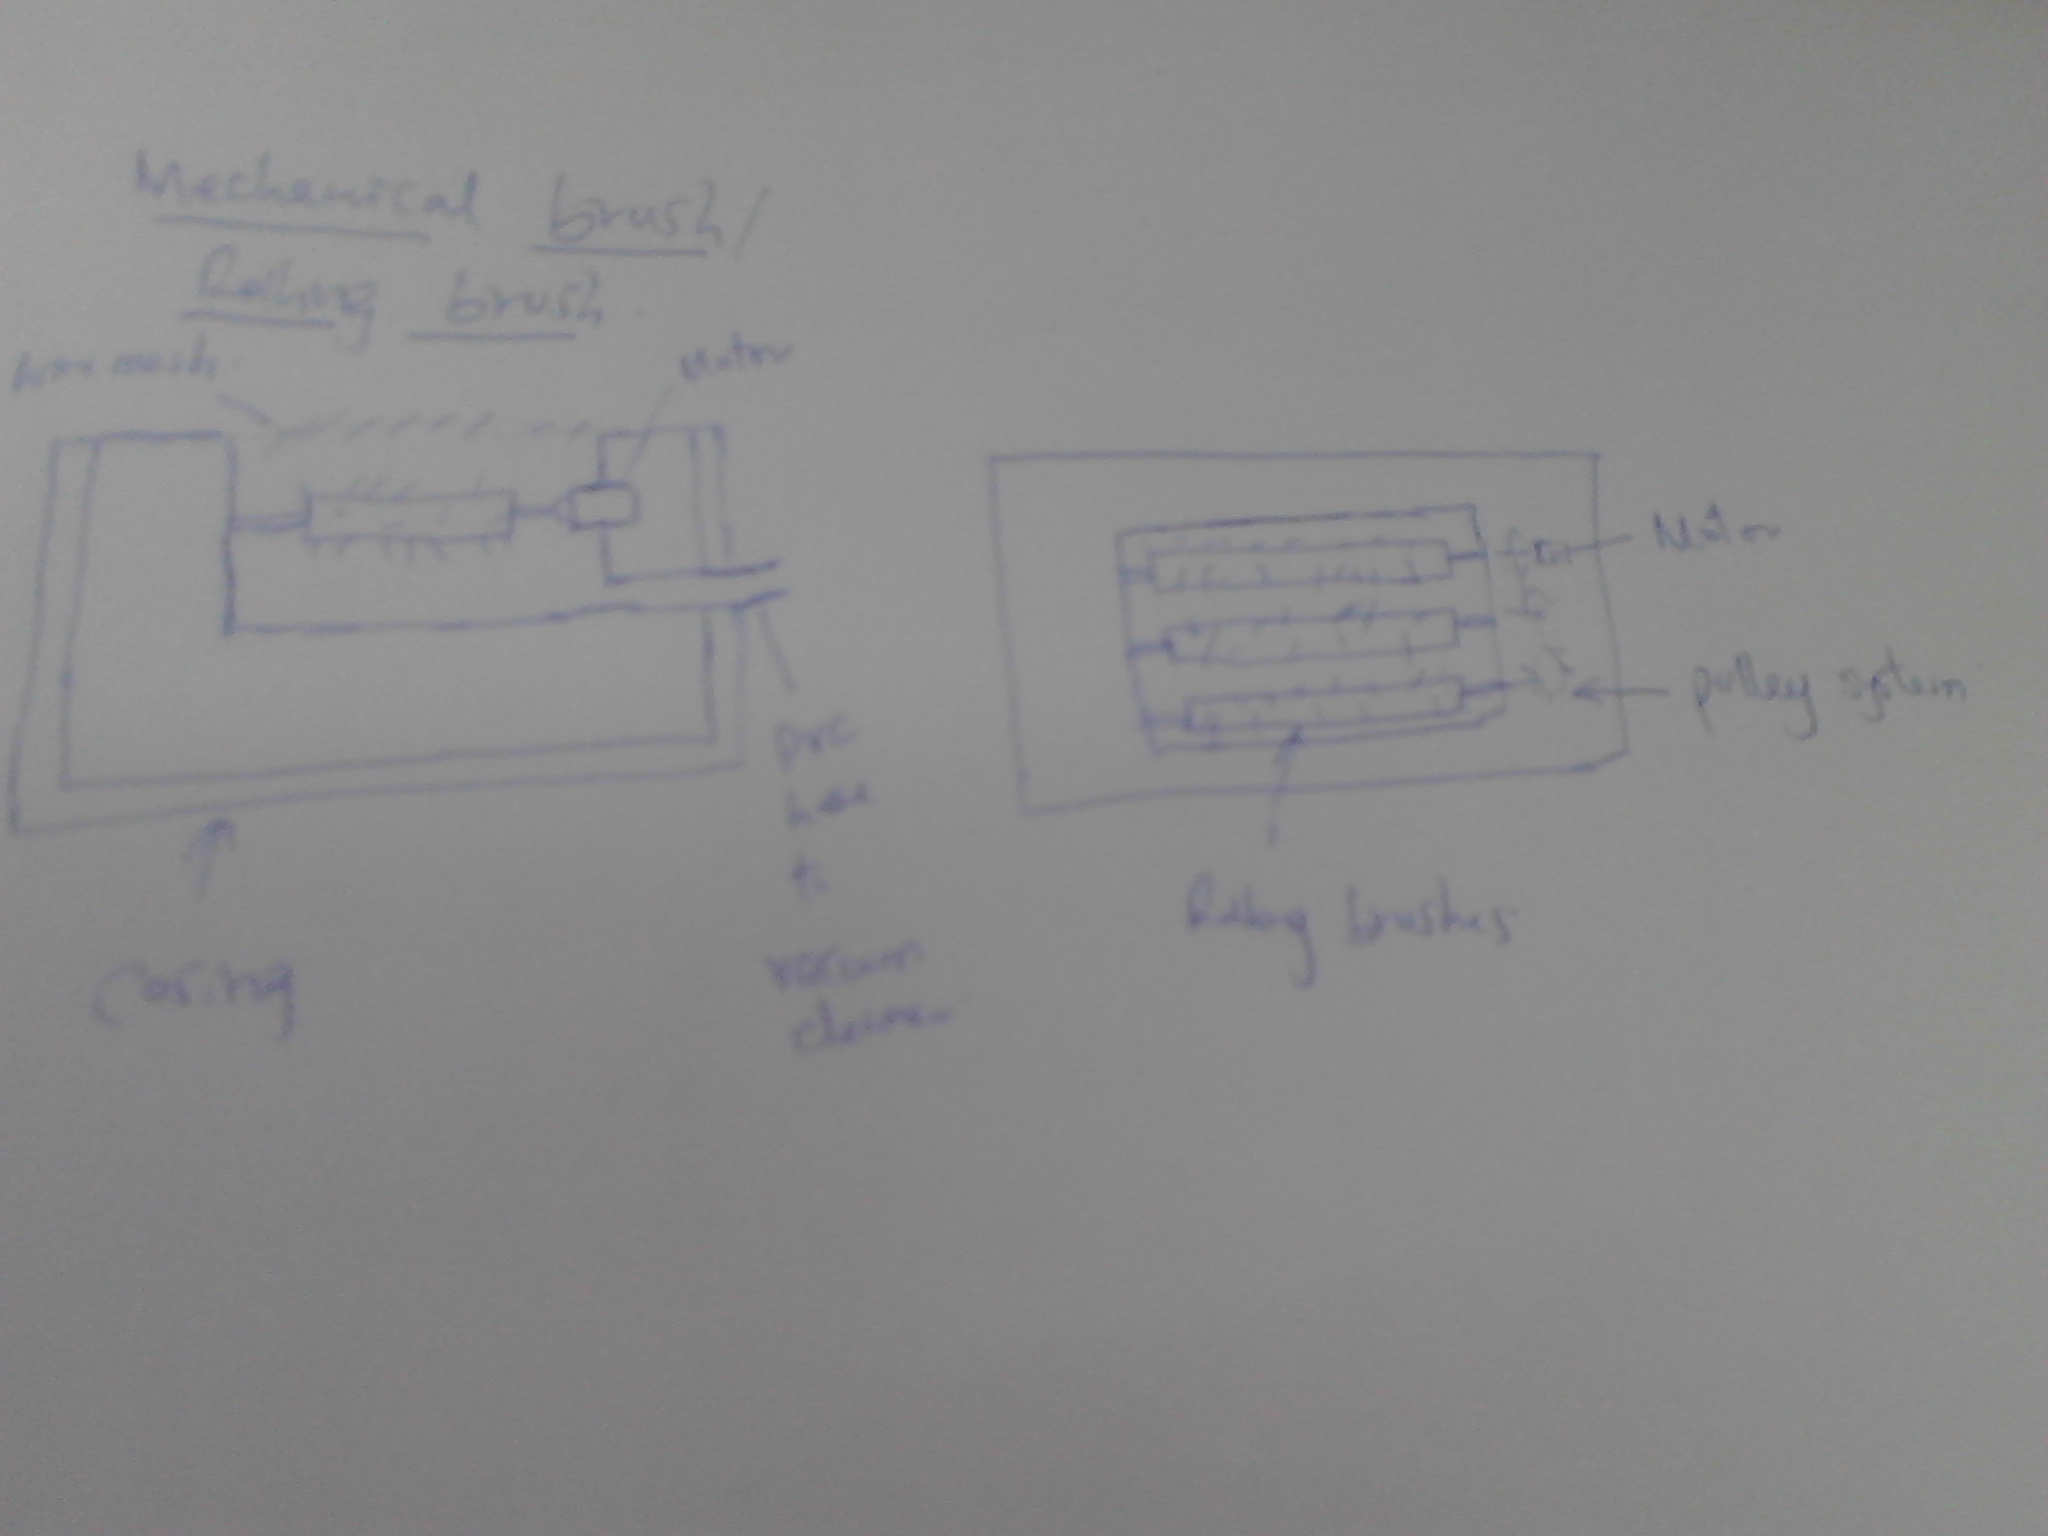 Mechanical brush/
Rolling brush.
mesh.
Motor
Casing
PVC
hose
to
vacuum
cleaner
Motor
pulley system
Rolling brushes